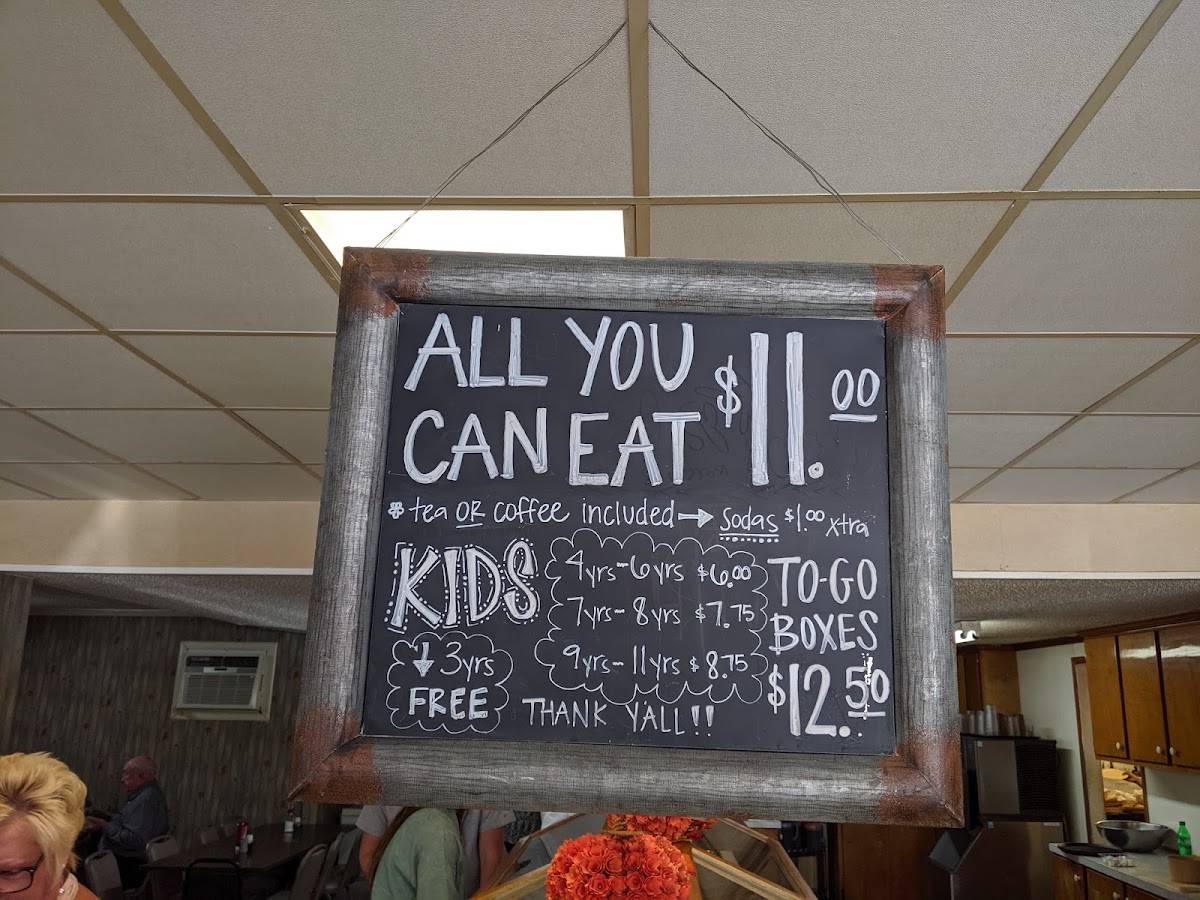 ALL YOU
CAN EAT $11.00
* tea OR coffee included → sodas $1.00 xtra
KIDS
↓ 3yrs
FREE
4yrs-6yrs $6.00
7yrs-8yrs $7.75
9yrs-11yrs $8.75
THANK Y'ALL!!
TO-GO
BOXES
$12.50